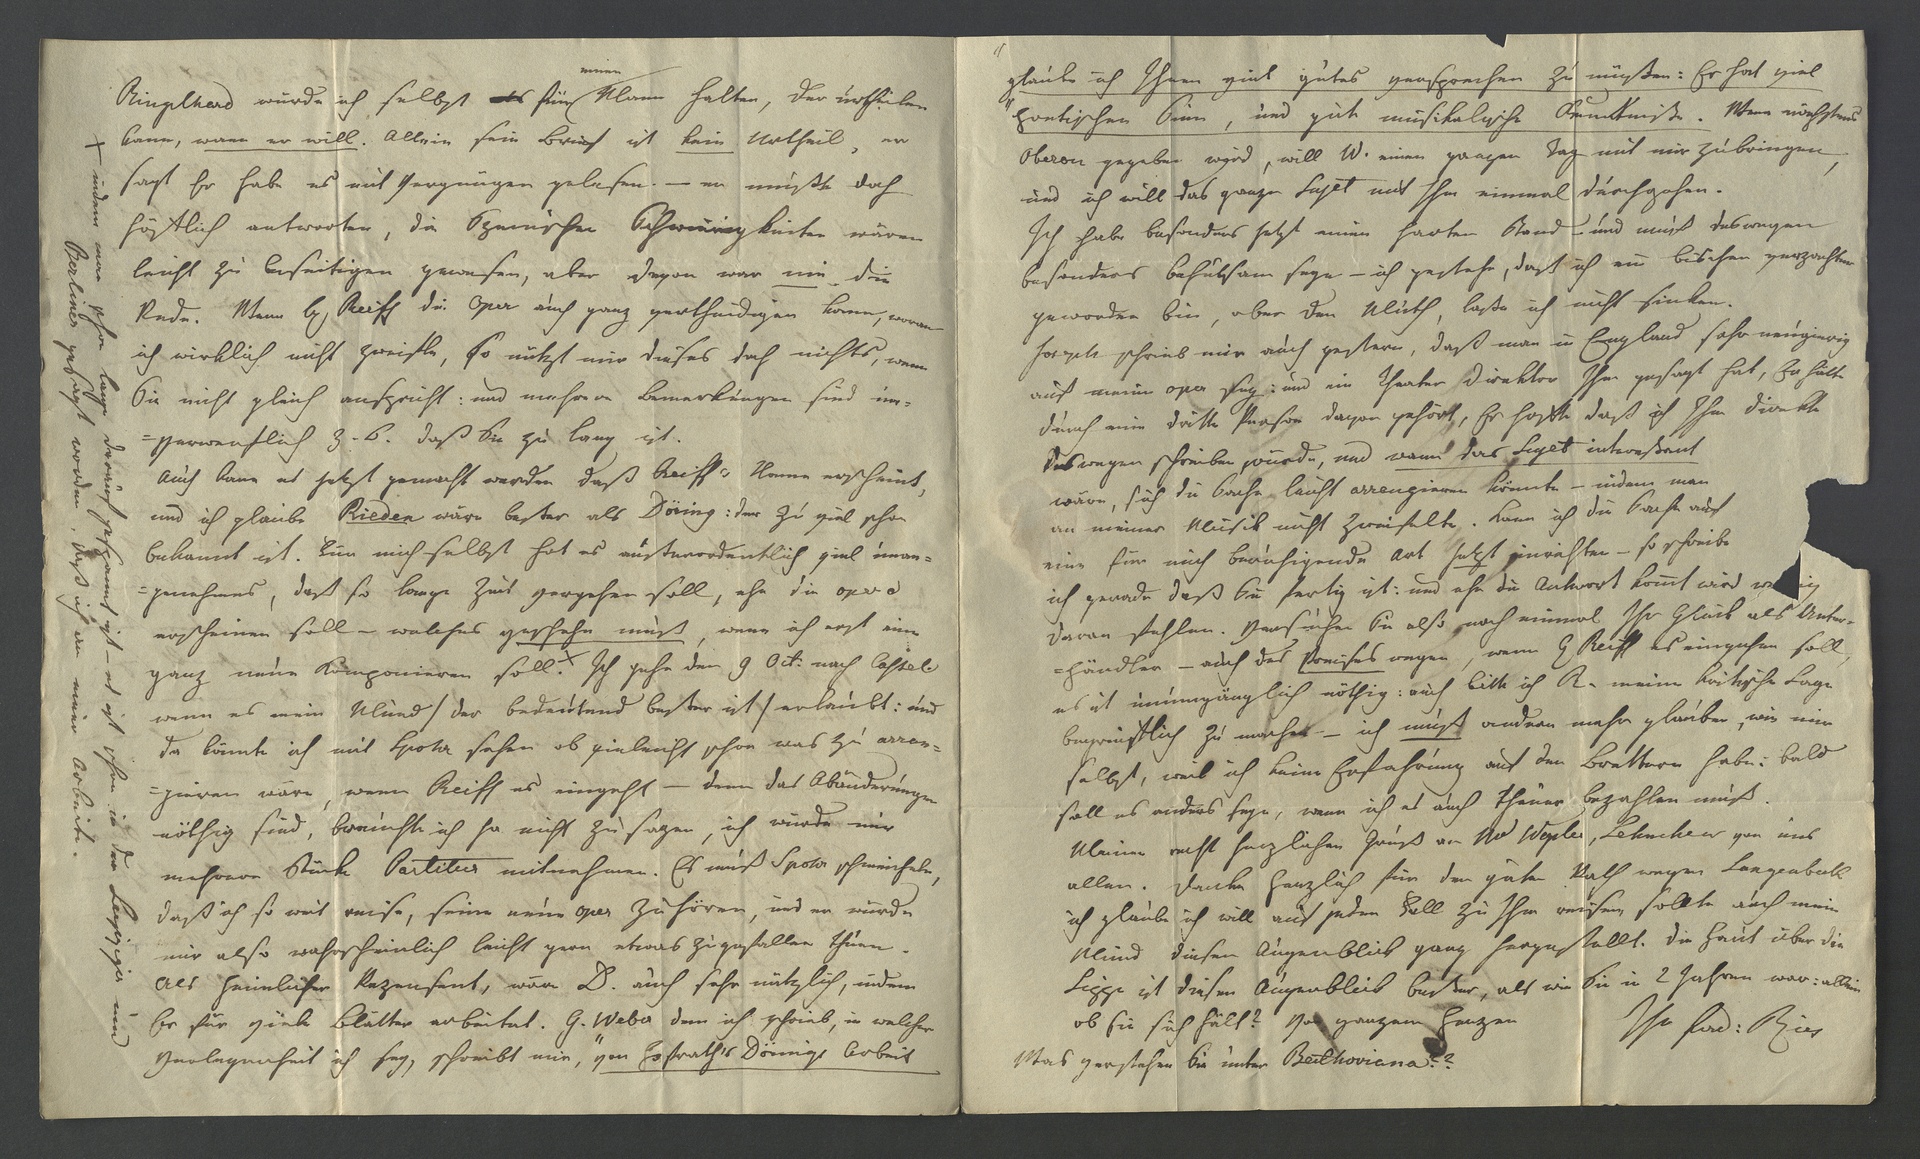 Ringelhard würde ich selbst für einen Mann halten, der urtheilen
kann, wann er will. Allein sein Brief ist kein Urtheil, er
sagt Er habe es mit Vergnügen gelesen – er mußte doch
höflich antworten, die Szenischen Schwierigkeiten wären
leicht zu beseitigen gewesen, aber davon war nie die
Rede. Wenn H. Reiff die Oper auch ganz vertheidigen kann, woran
ich wirklich nicht zweifle, so nützt mir dieses doch nichts, wenn
Sie nicht gleich anspricht: und mehrere Bemerkungen sind un=
=verwerflich z. B. daß Sie zu lang ist.
Auch kann es jetzt gemacht werden daß Reiff's Name erscheint,
und ich glaube Rieden wäre besser als Döring: der zu viel schon
bekannt ist. Für mich selbst hat es außerordentlich viel unan=
=genehmes, daß so lange Zeit vergehen soll, ehe die oper
erscheinen soll – welches geschehn muß, wenn ich erst eine
ganz neue komponieren soll. + Ich gehe den 9 Oct: nach Cassel
wenn es mein Mund / der bedeutend besser ist / erlaubt: und
da könnte ich mit Spohr sehen ob vieleicht schon was zu arran=
=gieren wäre, wenn Reiff es eingeht – denn daß Abänderungen
nöthig sind, brauchte ich ja nicht zu sagen, ich würde nur
mehrere Stücke Partitur mitnehmen. Es muß Spohr schmeicheln,
daß ich so weit reise, seine neue oper zu hören, und er würde
mir also wahrscheinlich leicht gern etwas zugefallen thuen.
Als heimlicher Rezensent, wäre D. auch sehr nützlich, indem
Er für viele Blätter arbeitet. G. Weber dem ich schrieb, in welcher
Verlegenheit ich sey, schreibt mir, "von Hofrath's Dörings Arbeit
+ indem man schon lange darauf gespannt ist – es ist schon in der Leipziger und
Berliner gesagt worden, daß ich an einer arbeite.
glaube ich Ihnen viel gutes versprechen zu müßen: Er hat viel
"poetischen Sinn, und gute musikalische Kenntniße. Wenn nächstens
Oberon gegeben wird, will W. einen ganzen Tag mit mir zubringen,
und ich will das ganze Sujet mit Ihm einmal durchgehen.
Ich habe besonders jetzt einen harten Stand – und muß deswegen
besonders behutsam seyn – ich gestehe, daß ich ein bischen verzachter
geworden bin, aber den Muth, laße ich nicht sinken.
Joseph schrieb mir auch gestern, daß man in England sehr neugierig
auf meine oper sey: und ein Theater Direktor Ihm gesagt hat, Er hätte
durch eine dritte Person davon gehört, Er hoffte daß ich Ihm direkte
deswegen schreiben würde, und wann das Sujet interessant
wäre, sich die Sache leicht arrengieren könnte – indem man
an meiner Musik nicht zweifelte. Kann ich die Sache auf
eine für mich beruhigende Art jetzt einrichten – so schreibe
ich gerade daß Sie fertig ist: und ehe die Antwort kommt wird wenig
daran fehlen. Versuchen Sie also noch einmal Ihr Glück als Unter=
=händler – auch des Preises wegen, wenn H Reiff es eingehen soll,
es ist unumgänglich nöthig: auch bitte ich R. meine kritische Lage
begreiflich zu machen – ich muß andern mehr glauben, wie mir
selbst, weil ich keine Erfahrung auf den Brettern habe: bald
soll es anders seyn, wenn ich es auch theuer bezahlen muß.
Meinen recht herzlichen Gruß an Wegeler, Lehnchen von uns
allen. Danke herzlich für den guten Rath wegen Langenbeck
ich glaube ich will auf jeden Fall zu Ihm reisen, sollte auch mein
Mund diesen Augenblick ganz hergestellt. Die Haut über die
Lippe ist diesen Augenblick besser, als wie Sie in 2 Jahren war: allein
ob Sie sich hält? Von ganzem Herzen
Ihr Ferd: Ries
Was verstehen Sie unter Beethoviana??